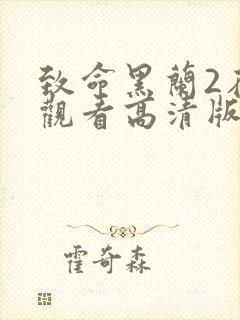 致命黑蘭2
觀看高清版
霍奇森